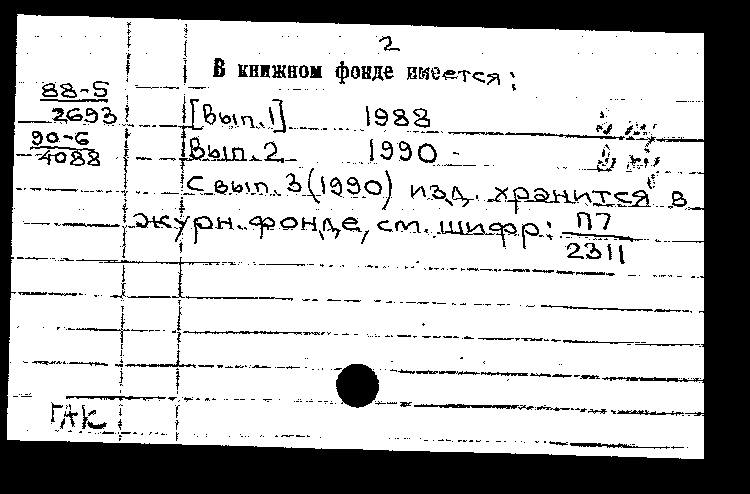 2
В книжном фонде имеется:
88-5
2693
[Вып.1] 1988
90-6
4088
Вып.2 1990 -
С вып.3(1990) изд. хранится в
журн.фонде, см. шифр: П7
2311
ГАК